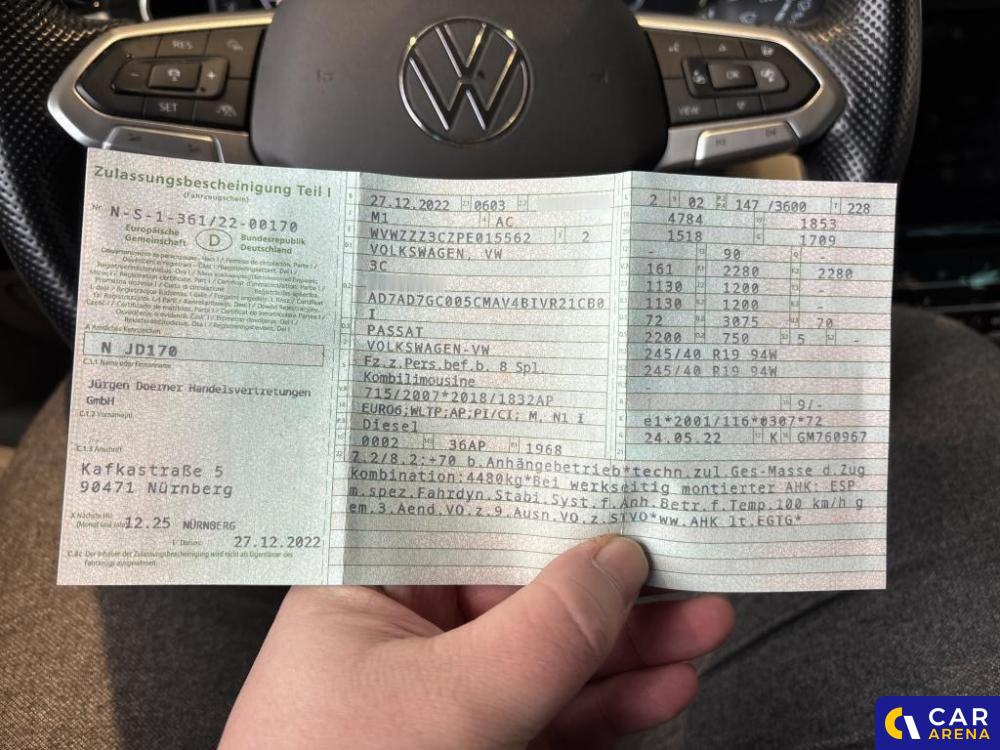 RES
SET
VIEW
OK
Zulassungsbescheinigung Teil I
(Fahrzeugschein)
Nr. N-S-1-361/22-00170
Europäische Gemeinschaft
D
Bundesrepublik Deutschland
A Amtliches Kennzeichen
N JD170
C.1.1 Name oder Firmenname
Jürgen Doerner Handelsvertretungen
GmbH
C.1.2 Vorname(n)
C.1.3 Anschrift
Kafkastraße 5
90471 Nürnberg
12.25 NÜRNBERG
27.12.2022
C.4c Der Inhaber der Zulassungsbescheinigung wird nicht als Eigentümer des
Fahrzeugs ausgewiesen.
27.12.2022 0603
M1 AC
WVWZZZ3CZPE015562 2
VOLKSWAGEN, VW
3C
AD7AD7GC005CMAV4BIVR21CB0
I
PASSAT
VOLKSWAGEN-VW
Fz.z.Pers.bef.b. 8 Spl.
Kombilimousine
715/2007*2018/1832AP
EURO6;WLTP;AP;PI/CI; M, N1 I
Diesel
0002 36AP 1968
2 02 147 /3600 228
4784 1853
1518 1709
- 90 -
161 2280 2280
1130 1200
1130 1200
72 3075 70
2200 750 5 -
245/40 R19 94W
245/40 R19 94W
-
9/-
e1*2001/116*0307*72
24.05.22 K GM760967
7.2/8.2:+70 b.Anhängebetrieb*techn.zul.Ges-Masse d.Zug
kombination:4480kg*Bei werkseitig montierter AHK: ESP
m.spez.Fahrdyn.Stabi.Syst.f.Anh.Betr.f.Temp.100 km/h g
em.3.Aend.VO.z.9.Ausn.VO.z.STVO*WW.AHK lt.EGTG*
CAR
ARENA